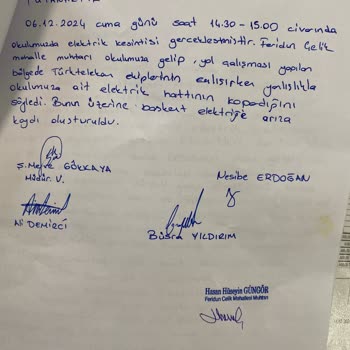 TUTANAKTIR
06.12.2024 cuma günü saat 14.30 - 15.00 civarında
okulumuzda elektrik kesintisi gerçekleşmiştir. Feridun Çelik
mahalle muhtarı okulumuza gelip, yol çalışması yapılan
bölgede Türktelekom ekiplerinin çalışırken yanlışlıkla
okulumuza ait elektrik hattının kopardığını
söyledi. Bunun üzerine başkent elektriğe arıza
kaydı oluşturuldu.
Ş. Merve GÖKKAYA
Müdür V.
Nesibe ERDOĞAN
Ali DEMİRCİ
Büşra YILDIRIM
Hasan Hüseyin GÜNGÖR
Feridun Çelik Mahallesi Muhtarı